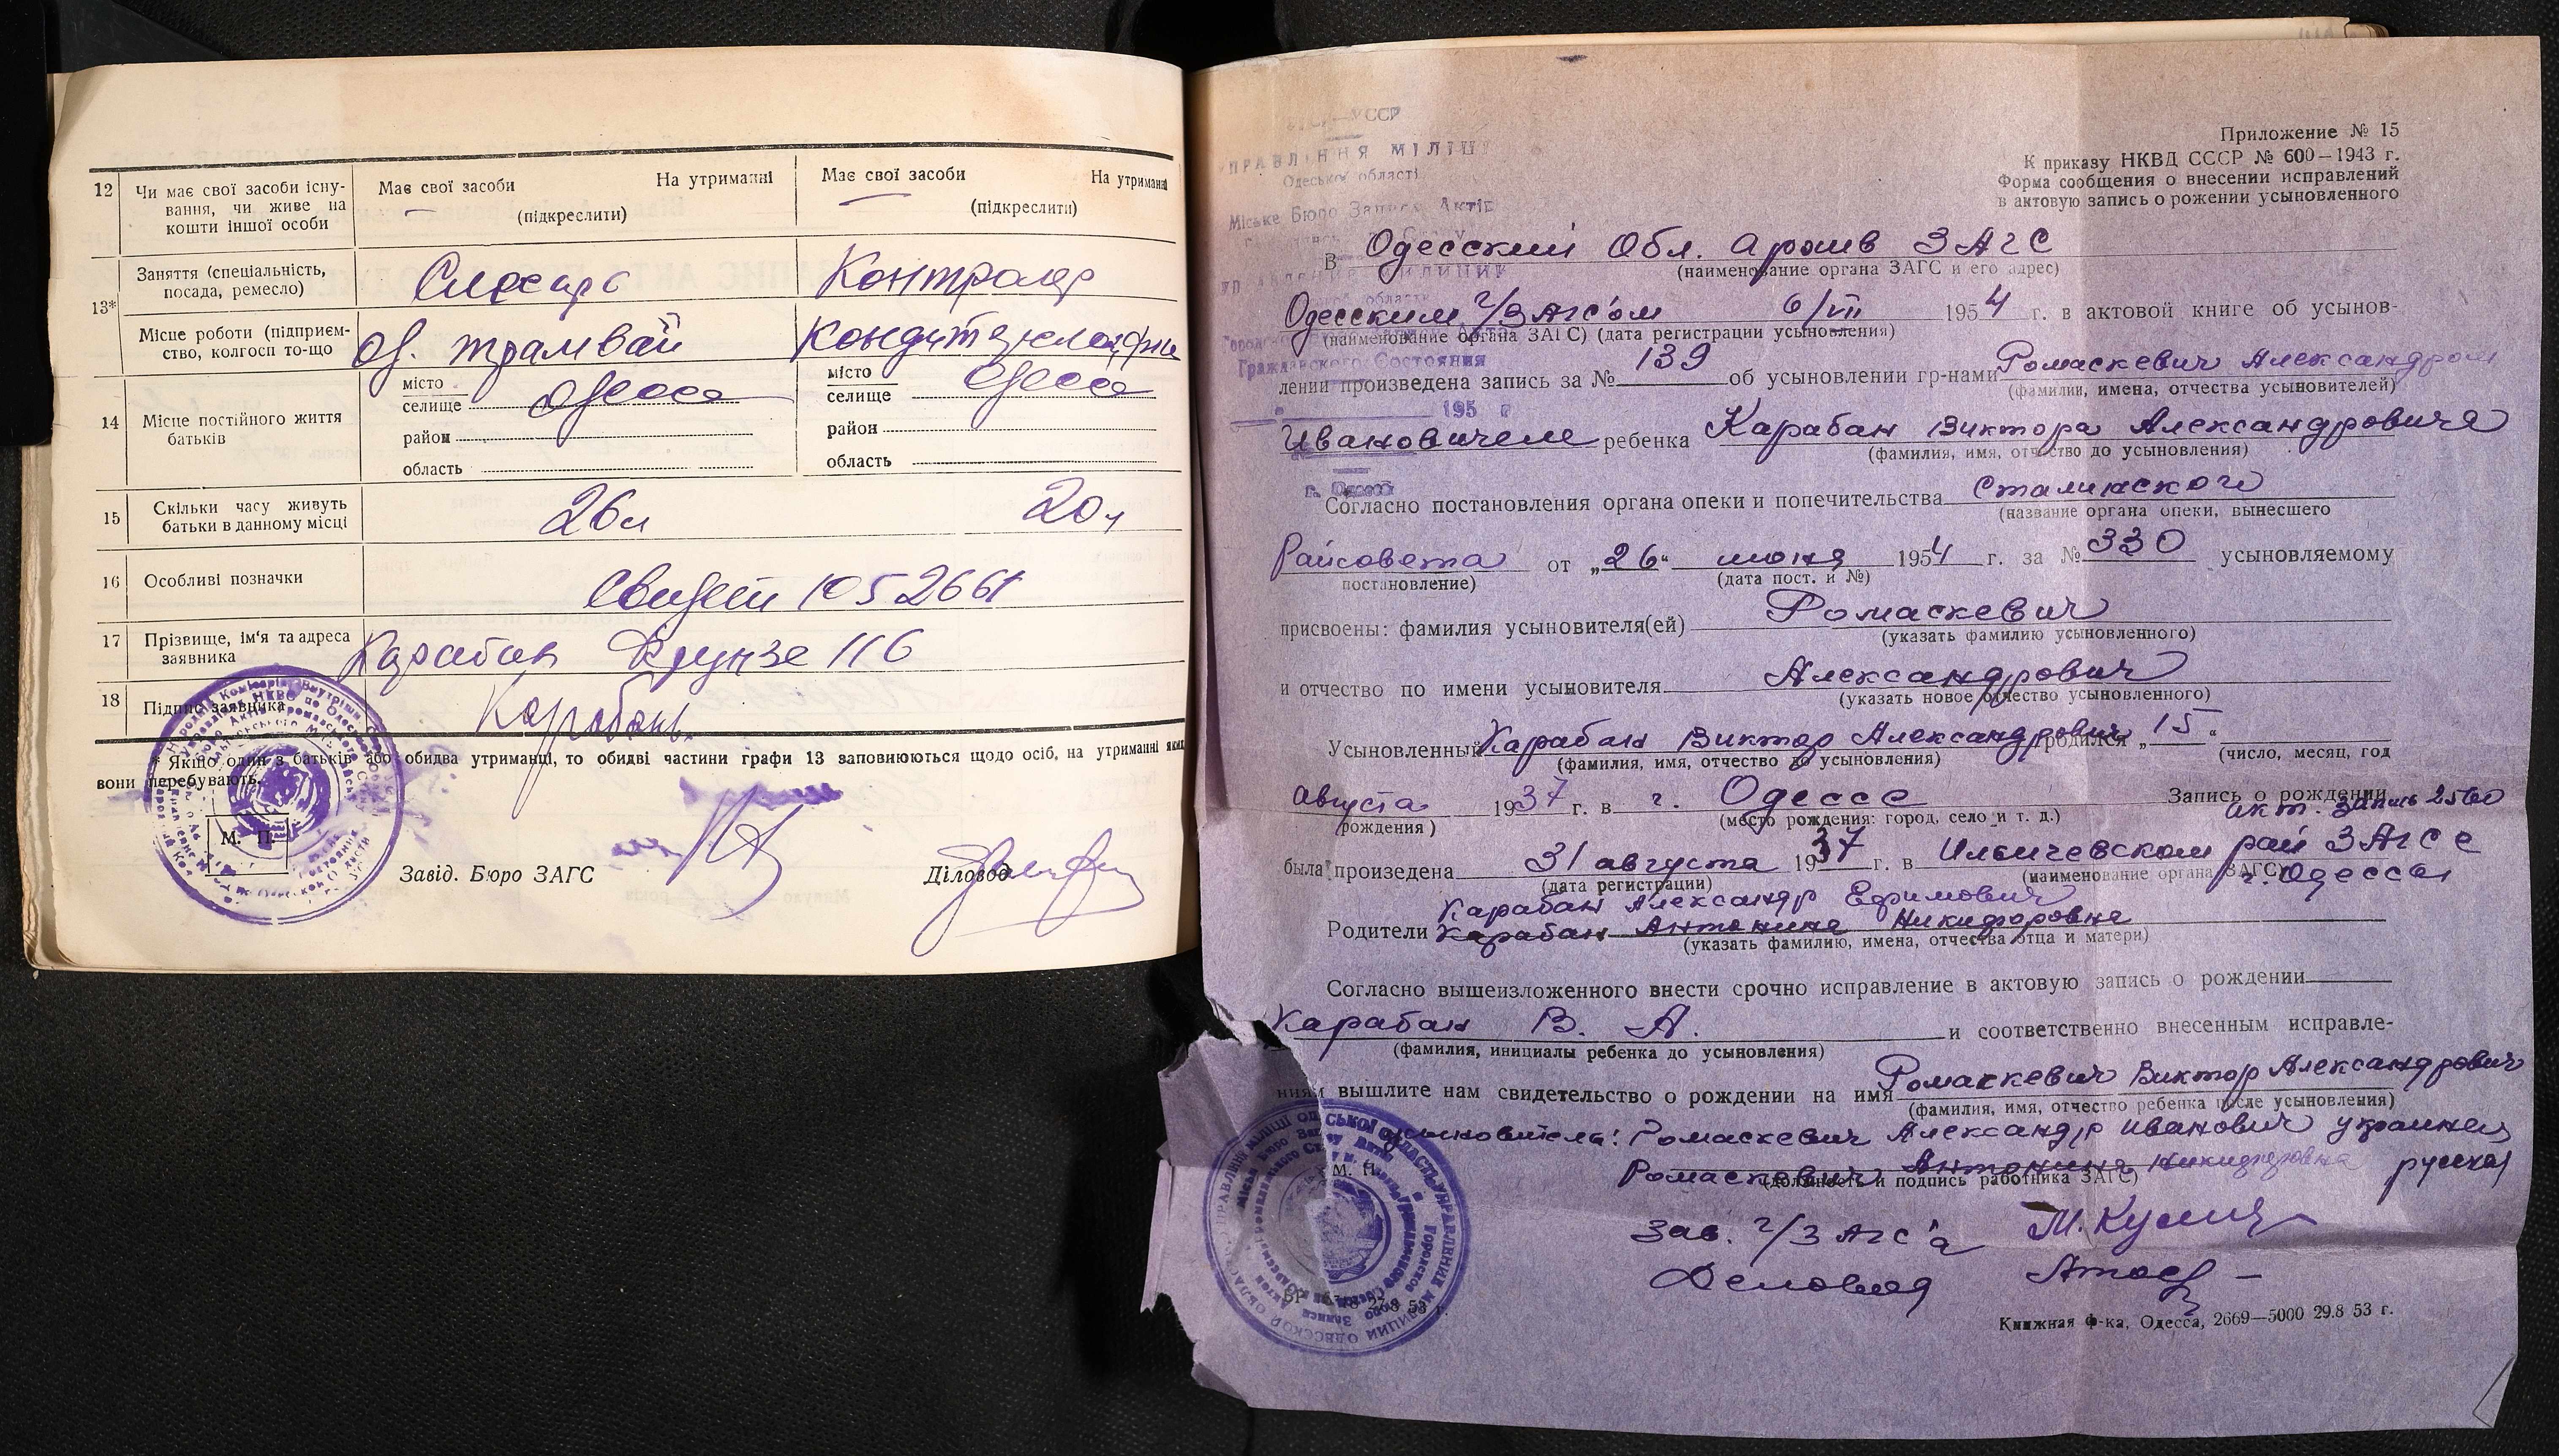 12 Чи має свої засоби існу- Має свої засоби На утриманні Має свої засоби На утриманні
вання, чи живе на (підкреслити) (підкреслити)
кошти іншої особи
13* Заняття (спеціальність, Слесарь Контролер
посада, ремесло)
Місце роботи (підприєм- Од. трамвай
ство, колгосп то-що
14 Місце постійного життя місто Одесса місто Одесса
батьків селище селище
район район
область область
15 Скільки часу живуть 26 л 20 л
батьки в данному місці
16 Особливі позначки Свидет 1052661
17 Прізвище, ім'я та адреса Карабан Фрунзе 116
заявника
18 Підпис заявника Карабань
* Якщо один з батьків або обидва утриманці, то обидві частини графи 13 заповнюються щодо осіб, на утриманні яких
вони перебувають.
М. П.
Завід. Бюро ЗАГС Діловод
УССР
УПРАВЛІННЯ МІЛІЦІЇ
Одеської області
Міське Бюро Запису Актів
Гражданского Состояния
195 г
г. Одесса
Приложение № 15
К приказу НКВД СССР № 600—1943 г.
Форма сообщения о внесении исправлений
в актовую запись о рожении усыновленного
В Одесский Обл. архив ЗАГС
(наименование органа ЗАГС и его адрес)
Одесским г/ЗАГС'ом 6/VII 1954 г. в актовой книге об усынов-
(наименование органа ЗАГС) (дата регистрации усыновления)
лении произведена запись за № 139 об усыновлении гр-нами Ромаскевич Александром
(фамилии, имена, отчества усыновителей)
Ивановичем ребенка Карабан Виктора Александровича
(фамилия, имя, отчество до усыновления)
Согласно постановления органа опеки и попечительства Сталинского
(название органа опеки, вынесшего
Райсовета от „26“ июня 1954 г. за № 330 усыновляемому
постановление) (дата пост. и №)
присвоены: фамилия усыновителя(ей) Ромаскевич
(указать фамилию усыновленного)
и отчество по имени усыновителя Александрович
(указать новое отчество усыновленного)
Усыновленный Карабан Виктор Александрович родился „15“
(фамилия, имя, отчество до усыновления) (число, месяц, год
августа 1937 г. в г. Одессе Запись о рождении
рождения) (место рождения: город, село и т. д.) акт. запись 2560
была произведена 31 августа 1937 г. в Ильичевском рай ЗАГСе
(дата регистрации) (наименование органа ЗАГС) г. Одессы
Карабан Александр Ефимович
Родители Карабан Антонина Никифоровна
(указать фамилию, имена, отчества отца и матери)
Согласно вышеизложенного внести срочно исправление в актовую запись о рождении
Карабан В. А. и соответственно внесенным исправле-
(фамилия, инициалы ребенка до усыновления)
ниям вышлите нам свидетельство о рождении на имя Ромаскевич Виктор Александрович
(фамилия, имя, отчество ребенка после усыновления)
усыновители: Ромаскевич Александр Иванович украинец
М. П. Ромаскевич Антонина Никифоровна русская
(должность и подпись работника ЗАГС)
Зав. г/ЗАГС'а
Деловод
Книжная ф-ка, Одесса, 2669—5000 29.8 53 г.